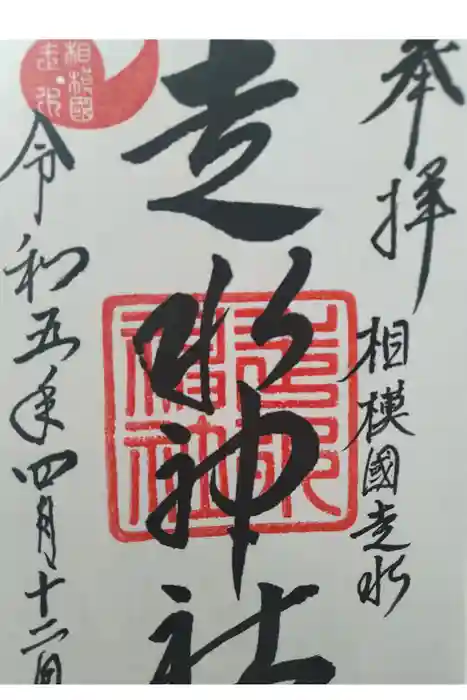 奉拝
相模國走水
走水神社
令和五年四月十二日
相模國
走水
走水
神社